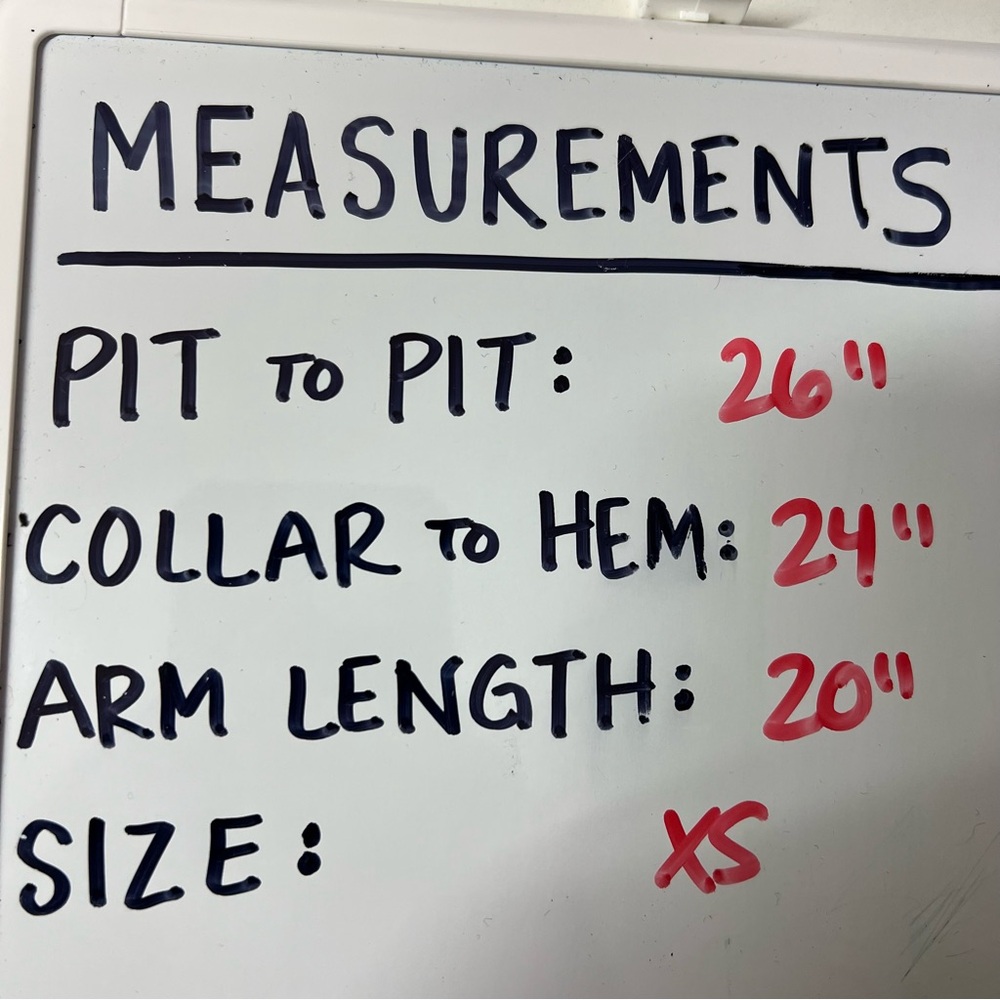 MEASUREMENTS
PIT TO PIT: 26"
COLLAR TO HEM: 24"
ARM LENGTH: 20"
SIZE: XS